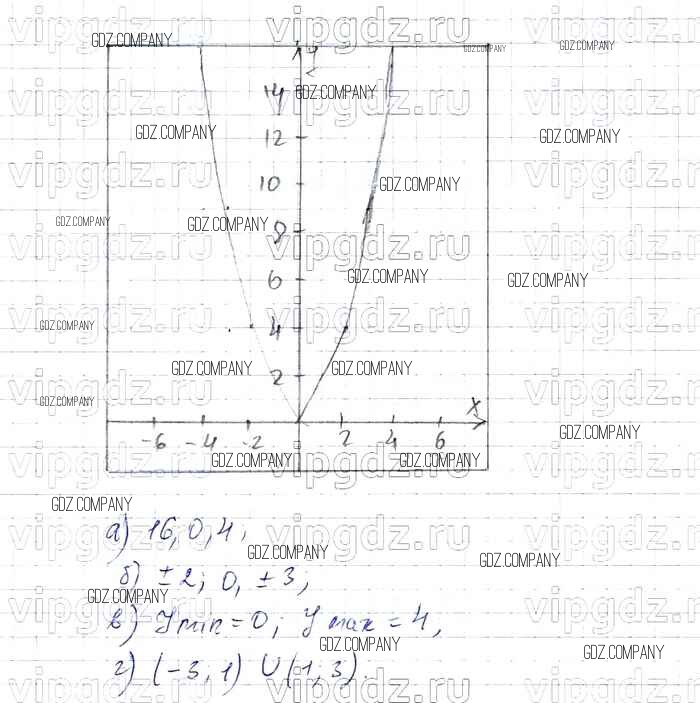 y
14
12
10
8
6
4
2
x
-6 -4 -2 0 2 4 6
а) 16, 0, 4,
б) ±2; 0, ±3;
в) y min = 0; y max = 4,
г) (-3, 1) ∪ (1, 3).
vipgdz.ru
GDZ.COMPANY